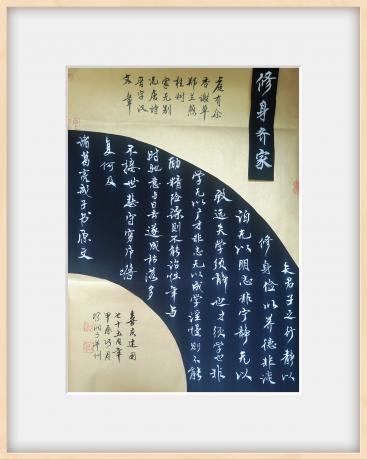 修身齐家
庭有余
香谢草
郑兰燕
桂树
家无别
况唐诗
晋字汉
文章
夫君子之行静以
修身俭以养德非淡
泊无以明志非宁静无以
致远夫学须静也才须学也非
学无以广才非志无以成学淫慢则不能
励精险躁则不能治性年与
时驰意与日去遂成枯落多
不接世悲守穷庐将
复何及
诸葛亮戒子书原文
喜庆建国
七十五周年
甲辰